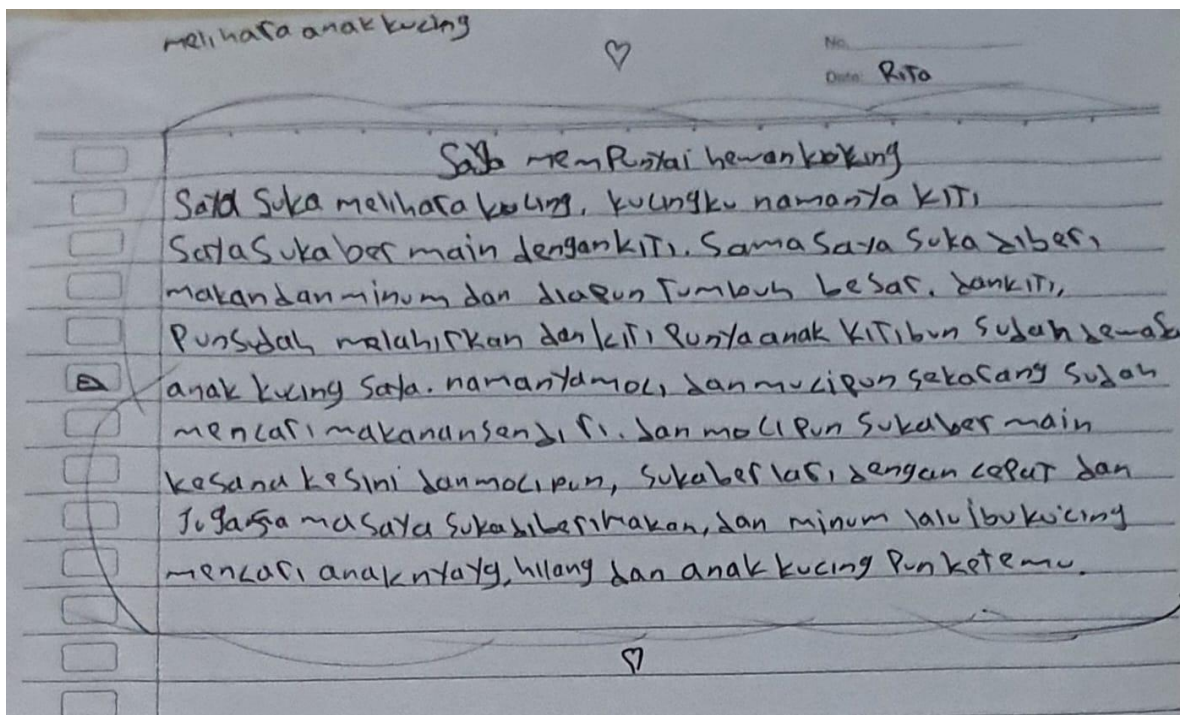 melihara anak kucing
No.
Date: Rita
Saya mempunyai hewan kucing
Saya suka melihara kucing. kucingku namanya kiti
Saya suka ber main dengan kiti. Sama saya suka diberi
makan dan minum dan diapun tumbuh besar. dan kiti,
Pun sudah melahirkan dan kiti Punya anak kitibun sudah
anak kucing saya. namanya moci dan mucipun sekarang sudah
mencari makanan sendiri. dan moci pun suka ber main
kesana kesini dan moci pun, suka ber lari dengan cepat dan
Juga sama saya suka diberi makan, dan minum lalu ibu kucing
mencari anaknya yg, hilang dan anak kucing Pun ketemu.